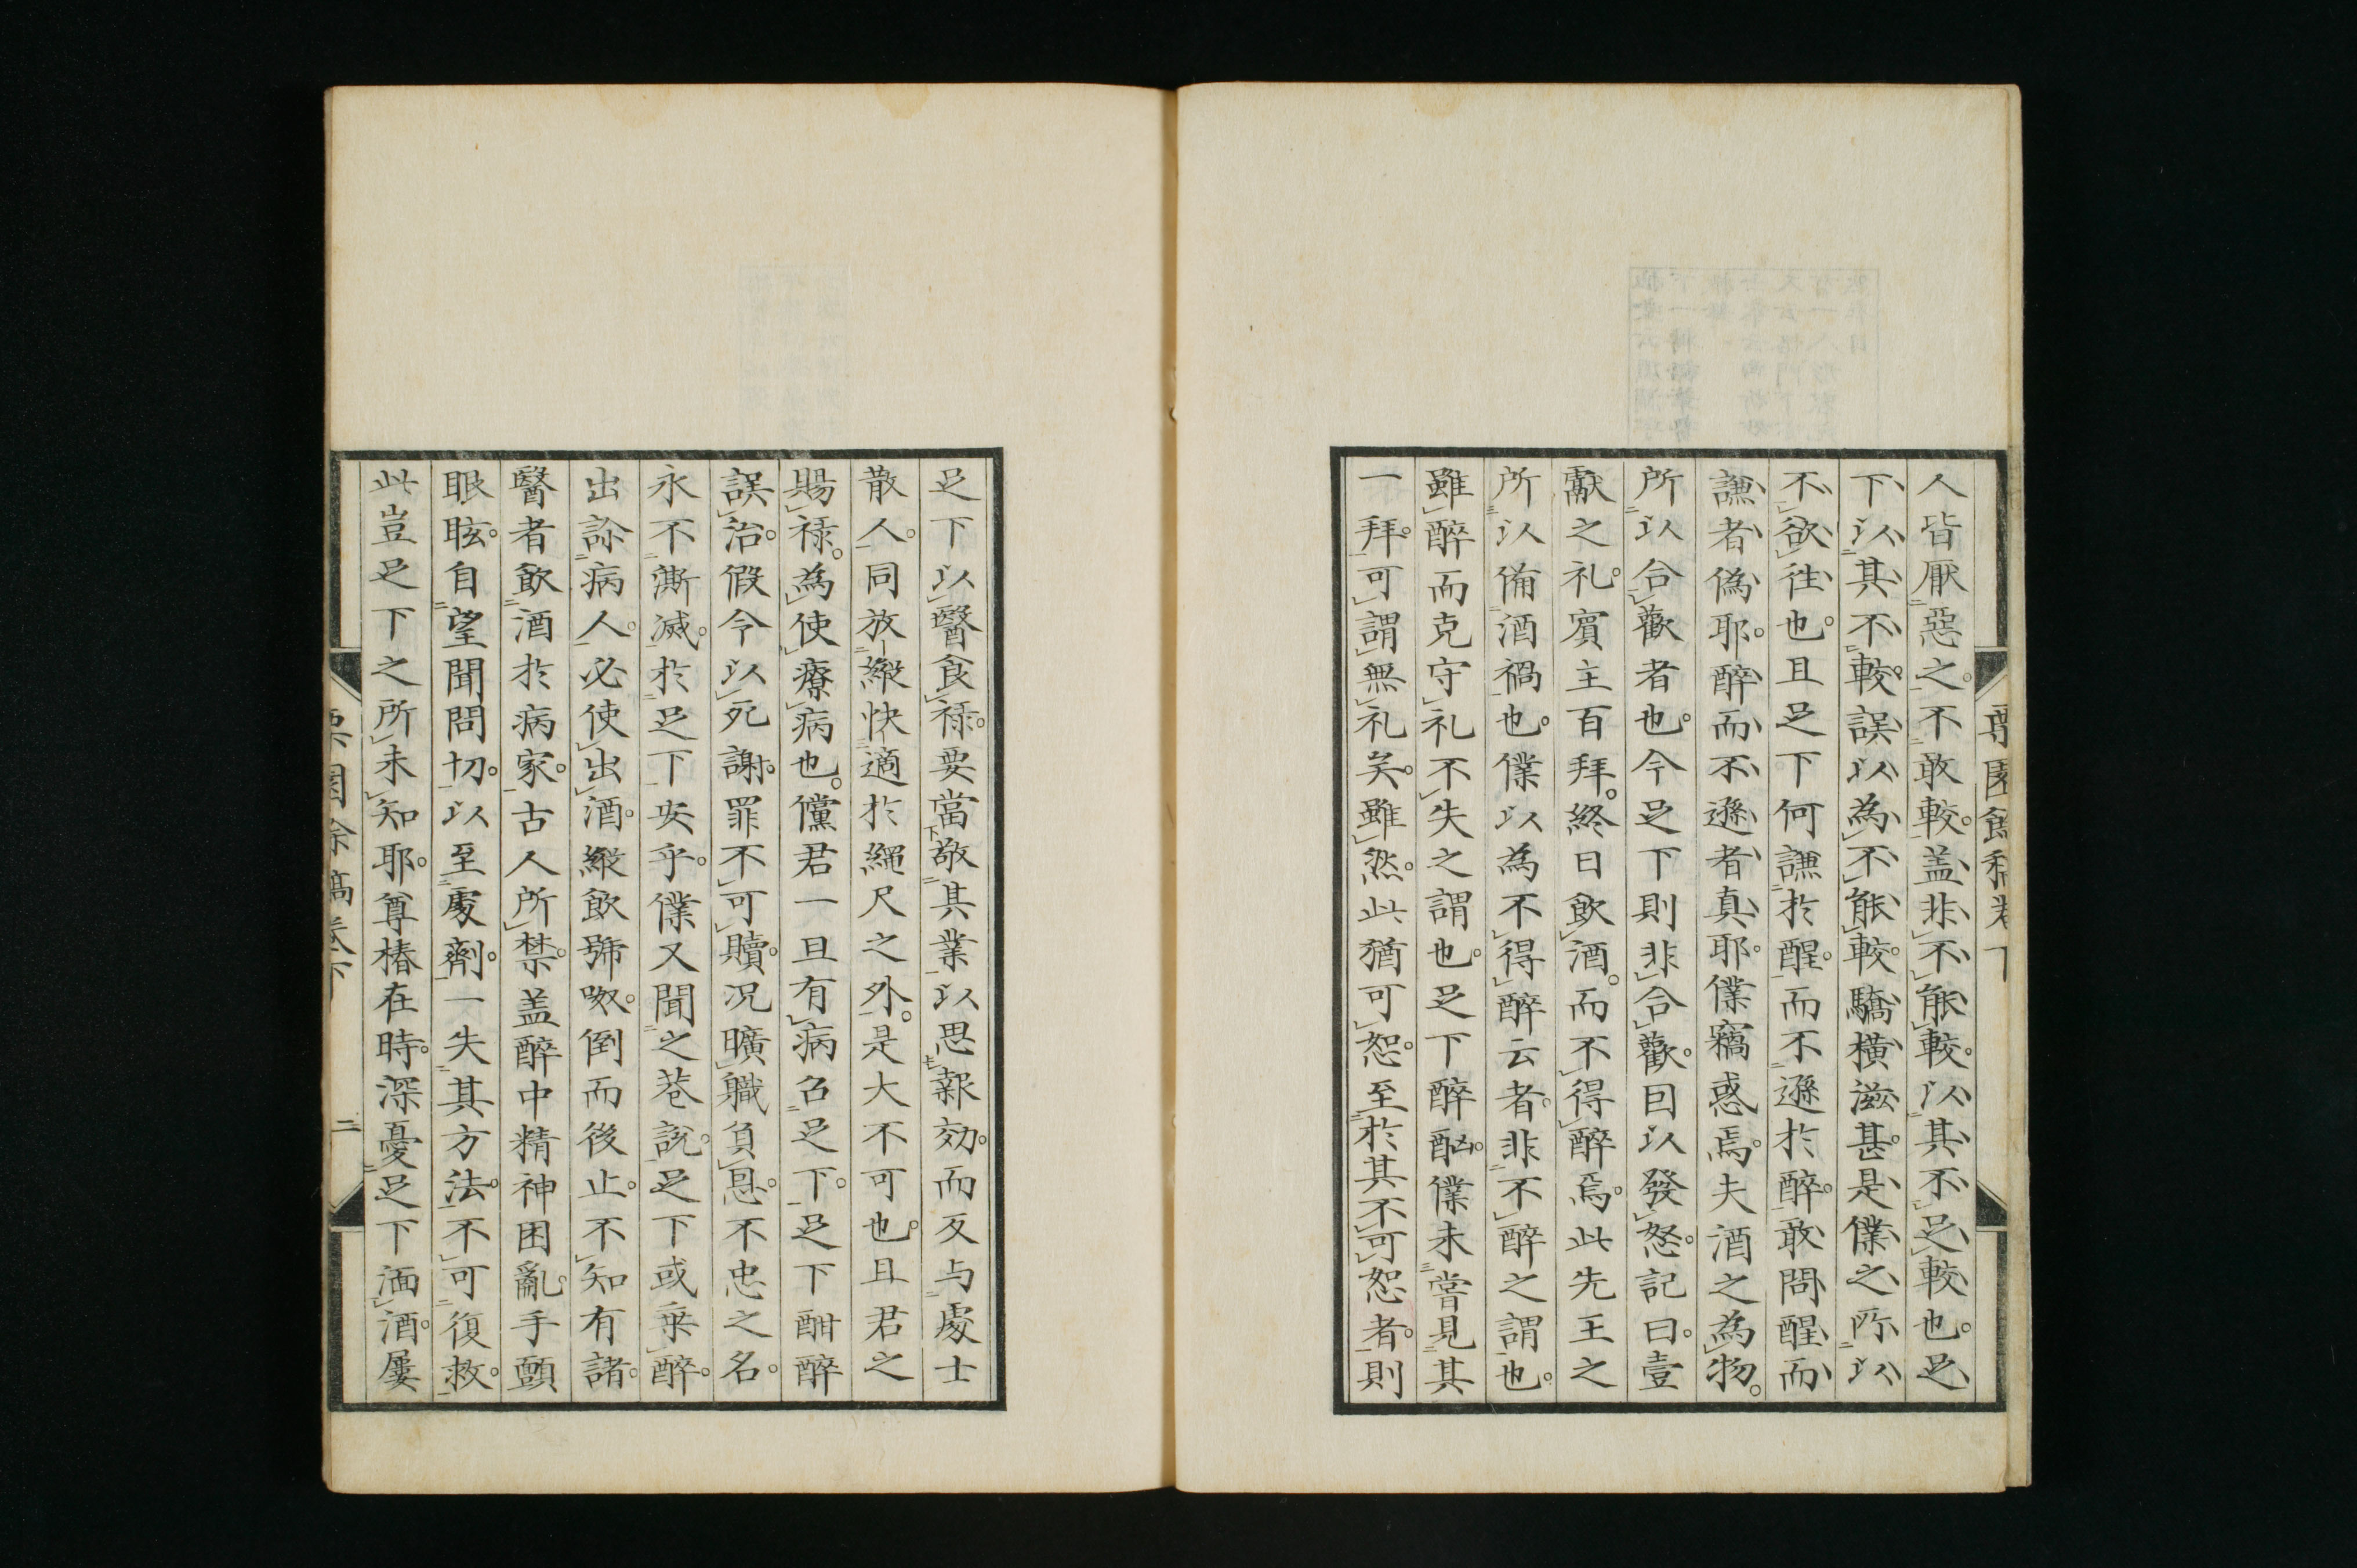 人皆厭惡之。不敢較。盖非不能較。以其不足較也。足
下以其不較。誤以為不能較。驕橫滋甚。是僕之所以
不欲往也。且足下何謙於醒。而不遜於醉。敢問醒而
謙者偽耶。醉而不遜者真耶。僕竊惑焉。夫酒之為物。
所以合歡者也。今足下則非合歡。囙以發怒。記曰。壹
獻之礼。賓主百拜。終日飲酒。而不得醉焉。此先王之
所以備酒禍也。僕以為不得醉云者。非不醉之謂也。
雖醉而克守礼不失之謂也。足下醉酗。僕未嘗見其
一拜。可謂無礼矣。雖然。此猶可恕。至於其不可恕者。則
足下以醫食祿。要當敬其業以思報効。而反与處士
散人。同放縱快適於繩尺之外。是大不可也。且君之
賜祿。為使療病也。儻君一旦有病召足下。足下酣醉
誤治。假令以死謝罪不可贖。况曠職負恩。不忠之名。
永不澌滅。於足下安乎。僕又聞之巷說。足下或乘醉。
出診病人。必使出酒。縱飲號呶。倒而後止。不知有諸。
醫者飲酒於病家。古人所禁。盖醉中精神困亂。手顫
眼眩。自望聞問切。以至處劑。一失其方法。不可復救。
此豈足下之所未知耶。尊椿在時。深憂足下湎酒。屢
二